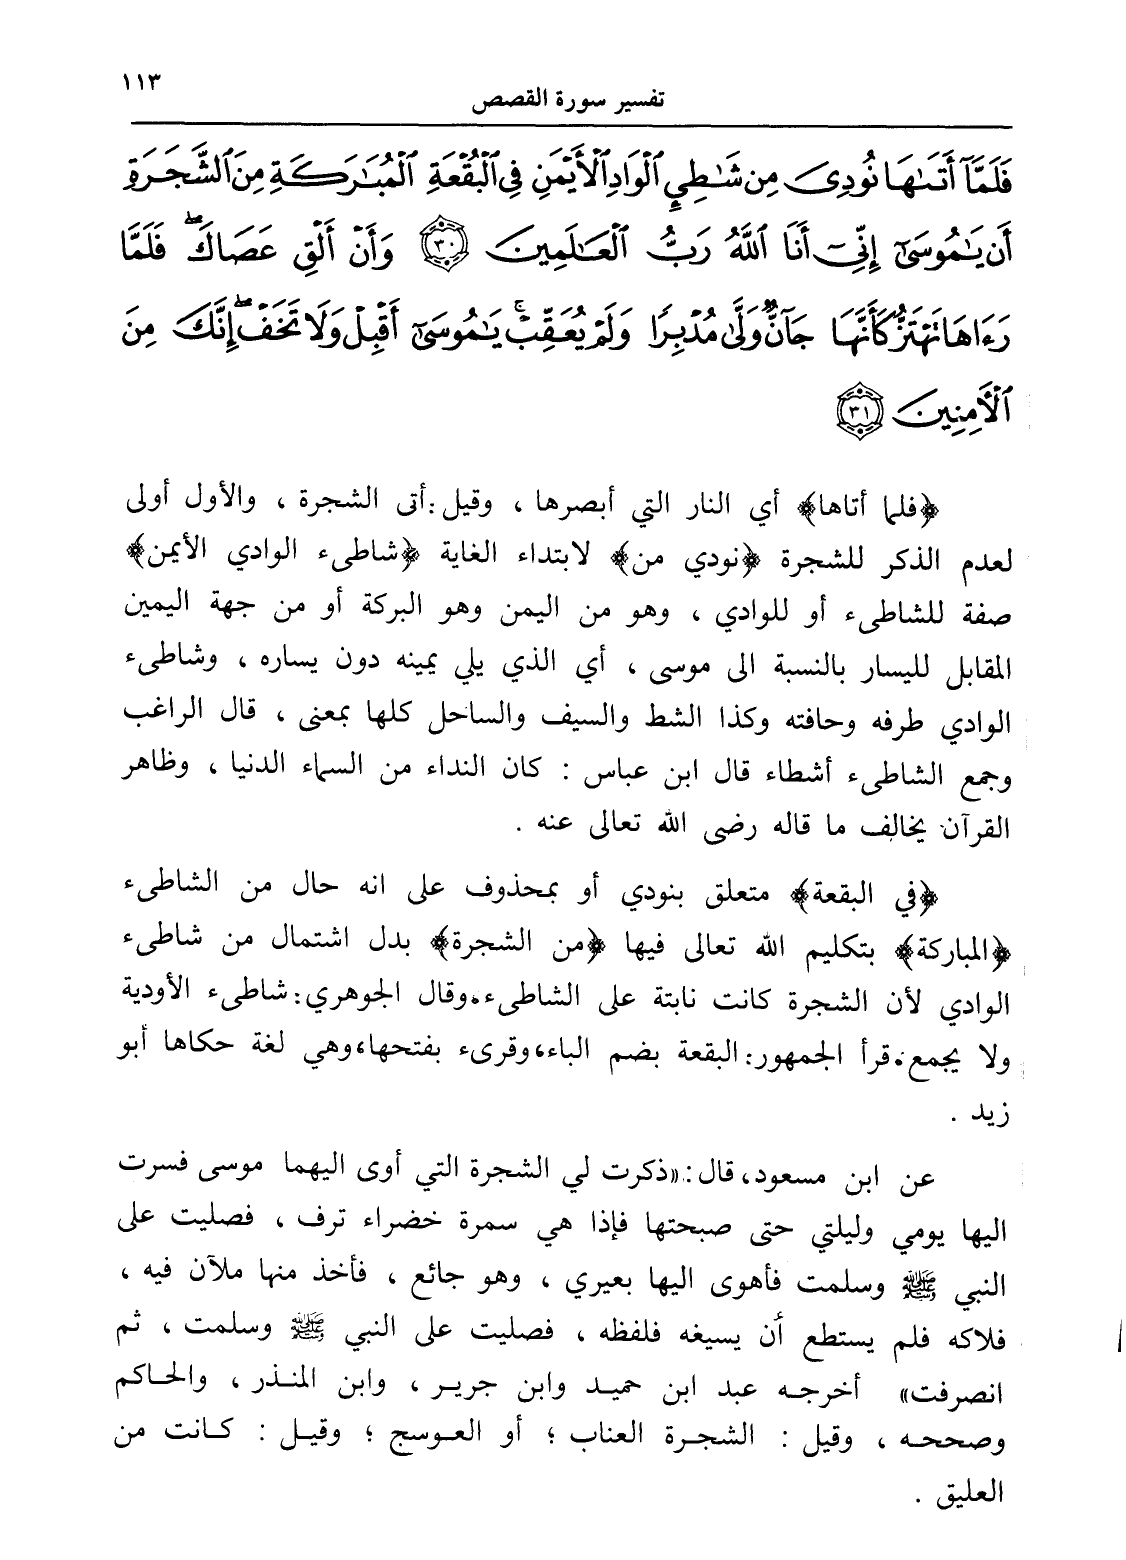 ١١٣
تفسير سورة القصص
فَلَمَّآ أَتَىٰهَا نُودِىَ مِن شَٰطِيِٕ ٱلْوَادِ ٱلْأَيْمَنِ فِى ٱلْبُقْعَةِ ٱلْمُبَٰرَكَةِ مِنَ ٱلشَّجَرَةِ
أَن يَٰمُوسَىٰٓ إِنِّىٓ أَنَا ٱللَّهُ رَبُّ ٱلْعَٰلَمِينَ ٣٠ وَأَنْ أَلْقِ عَصَاكَ ۖ فَلَمَّا
رَءَاهَا تَهْتَزُّ كَأَنَّهَا جَآنٌّ وَلَّىٰ مُدْبِرًا وَلَمْ يُعَقِّبْ ۚ يَٰمُوسَىٰٓ أَقْبِلْ وَلَا تَخَفْ ۖ إِنَّكَ مِنَ
ٱلْأٓمِنِينَ ٣١
﴿فلما أتاها﴾ أي النار التي أبصرها ، وقيل : أتى الشجرة ، والأول أولى
لعدم الذكر للشجرة ﴿نودي من﴾ لابتداء الغاية ﴿شاطىء الوادي الأيمن﴾
صفة للشاطىء أو للوادي ، وهو من اليمن وهو البركة أو من جهة اليمين
المقابل لليسار بالنسبة الى موسى ، أي الذي يلي يمينه دون يساره ، وشاطىء
الوادي طرفه وحافته وكذا الشط والسيف والساحل كلها بمعنى ، قال الراغب
وجمع الشاطىء أشطاء قال ابن عباس : كان النداء من السماء الدنيا ، وظاهر
القرآن يخالف ما قاله رضى الله تعالى عنه .
﴿في البقعة﴾ متعلق بنودي أو بمحذوف على انه حال من الشاطىء
﴿المباركة﴾ بتكليم الله تعالى فيها ﴿من الشجرة﴾ بدل اشتمال من شاطىء
الوادي لأن الشجرة كانت نابتة على الشاطىء. وقال الجوهري : شاطىء الأودية
ولا يجمع. قرأ الجمهور : البقعة بضم الباء، وقرىء بفتحها، وهي لغة حكاها أبو
زيد .
عن ابن مسعود، قال : «ذكرت لي الشجرة التي أوى اليهما موسى فسرت
اليها يومي وليلتي حتى صبحتها فإذا هي سمرة خضراء ترف ، فصليت على
النبي ﷺ وسلمت فأهوى اليها بعيري ، وهو جائع ، فأخذ منها ملآن فيه ،
فلاكه فلم يستطع أن يسيغه فلفظه ، فصليت على النبي ﷺ وسلمت ، ثم
انصرفت» أخرجه عبد ابن حميد وابن جرير ، وابن المنذر ، والحاكم
وصححه ، وقيل : الشجرة العناب ؛ أو العوسج ؛ وقيل : كانت من
العليق .